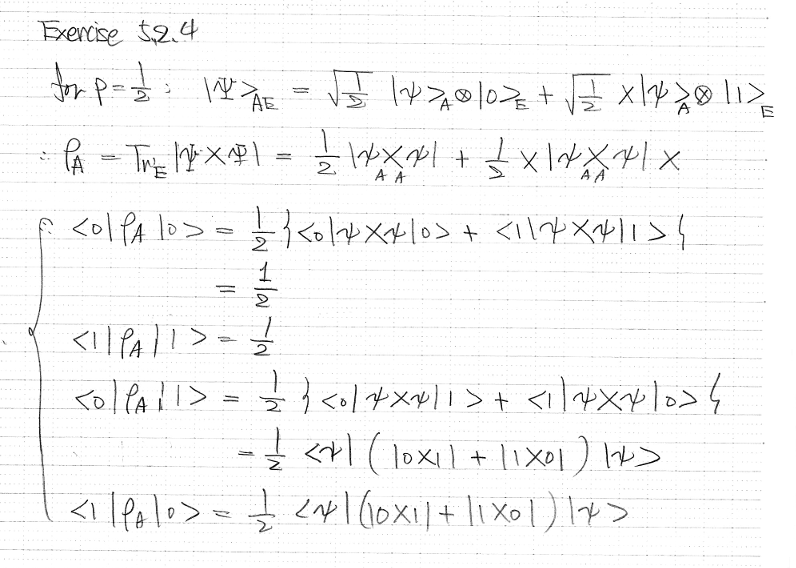 Exercise 5.2.4
for p = 1/2 : |Ψ>_AE = √(1/2) |ψ>_A ⊗ |0>_E + √(1/2) X|ψ>_A ⊗ |1>_E
∴ ρ_A = Tr_E |Ψ><Ψ| = 1/2 |ψ>_A<_Aψ| + 1/2 X|ψ>_A<_Aψ| X
∴ <0|ρ_A|0> = 1/2 {<0|ψ><ψ|0> + <1|ψ><ψ|1>}
= 1/2
<1|ρ_A|1> = 1/2
<0|ρ_A|1> = 1/2 {<0|ψ><ψ|1> + <1|ψ><ψ|0>}
= 1/2 <ψ| (|0><1| + |1><0|) |ψ>
<1|ρ_A|0> = 1/2 <ψ|(|0><1| + |1><0|) |ψ>